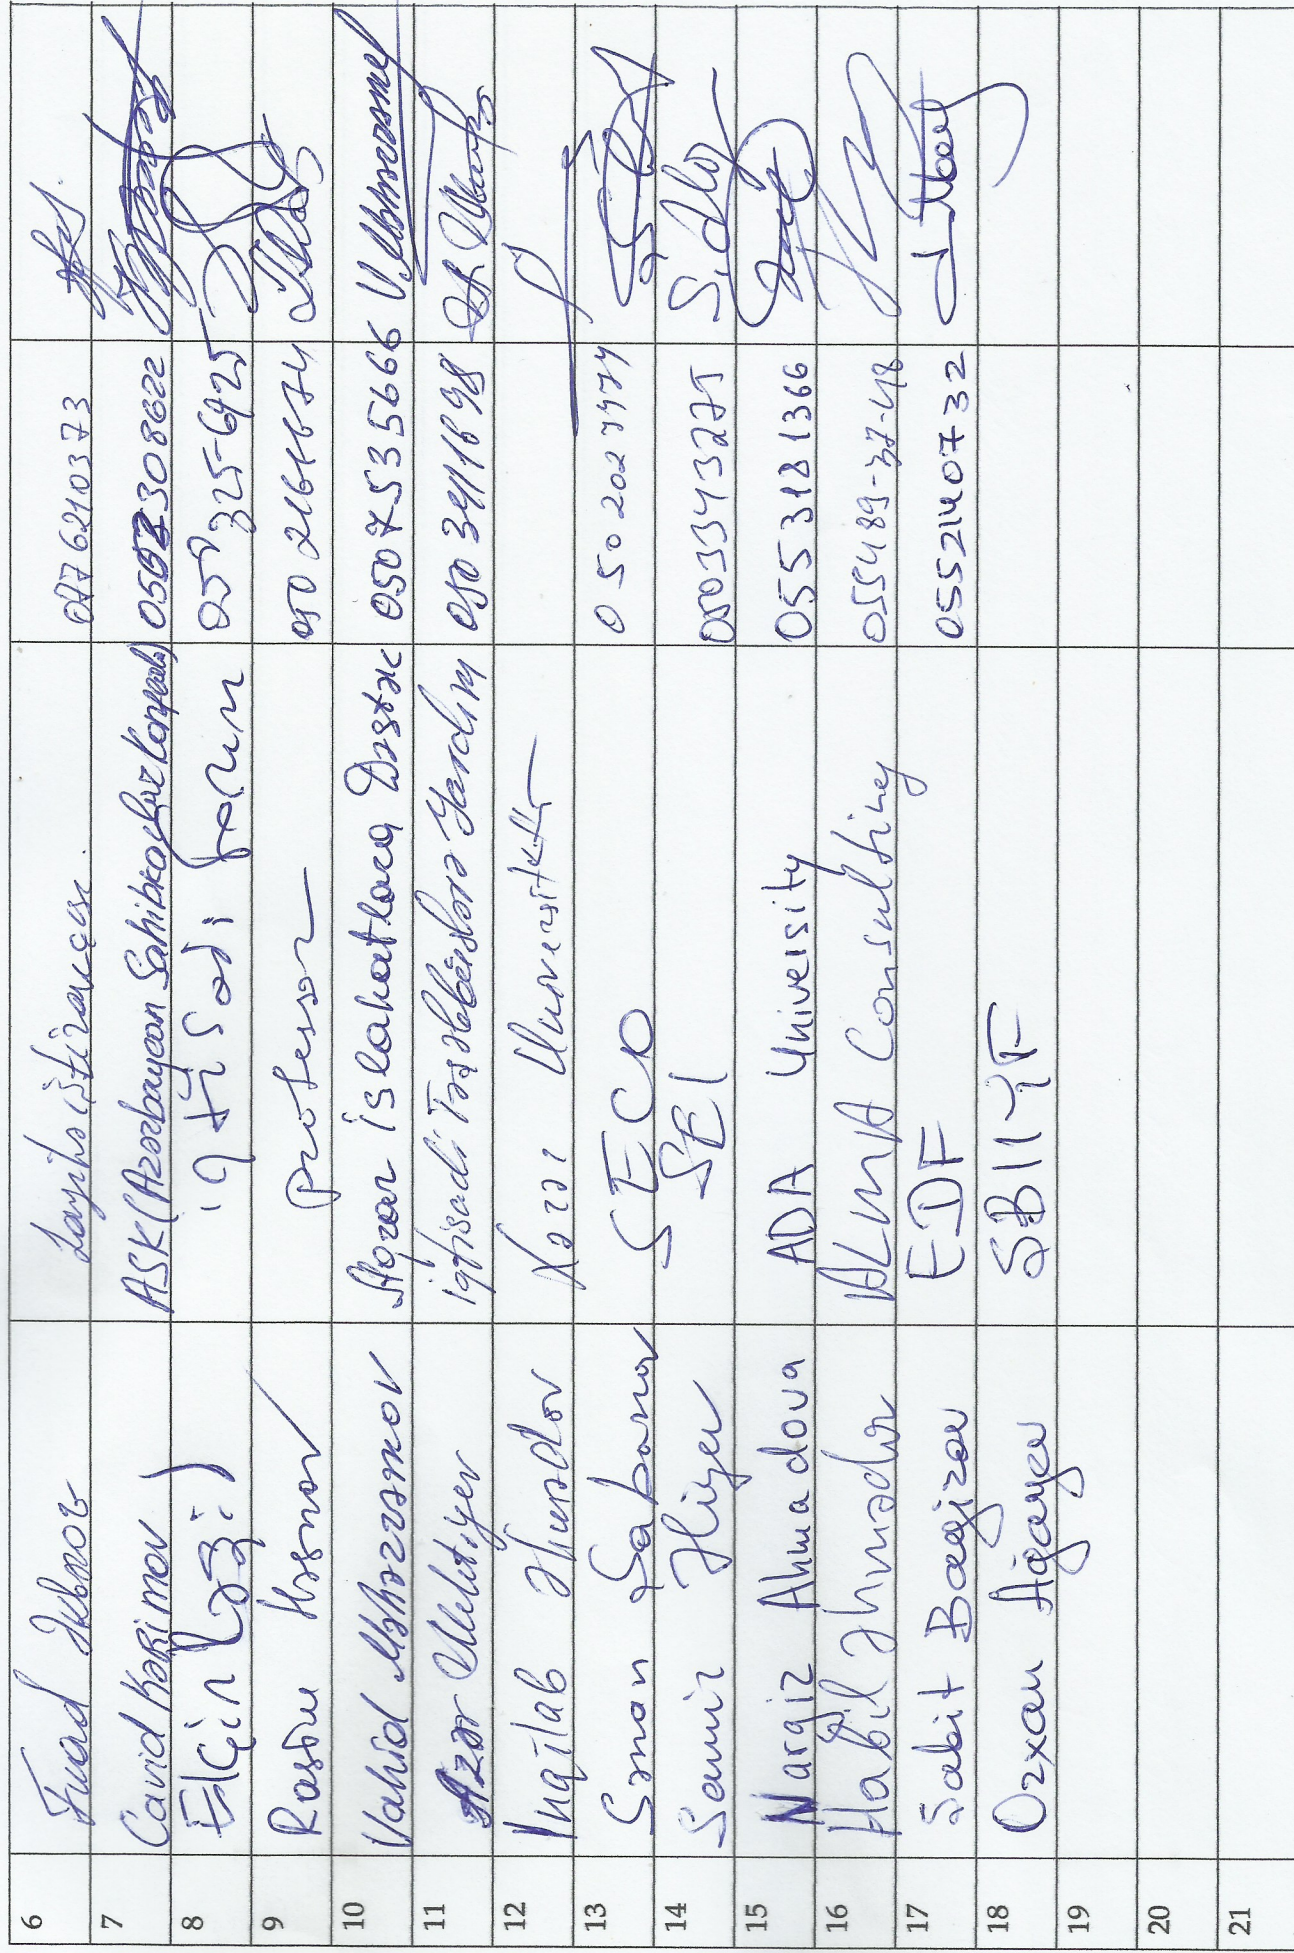 6 Fuad Əkbərov Layihə iştirakçısı 0776210373
7 Cavid Kərimov ASK (Azərbaycan Sahibkarlar Konfed.) 0502308622
8 Elçin iqtisadi forum 325-6925
9 Rasim Həsənov professor
10 Vahid Məhərrəmov Aqrar islahatlara Dəstək 0507535666 V.Məhərrəməl
11 Azər Mehtiyev iqtisadi Təşəbbüslərə Yardım
12 İnqilab Əhmədov Xəzər Universiteti
13 Səməd Şabanov SECO 0502027474
14 Samir Əliyev SEI 0503343275 S.Əliy
15 Nərgiz Ahmadova ADA University 0553181366
16 Habil Əhmədov ALMA Consulting 055489-37-48
17 Sabit Bağırov EDF 0552140732
18 Orxan Ağayev SBİİYF
19
20
21